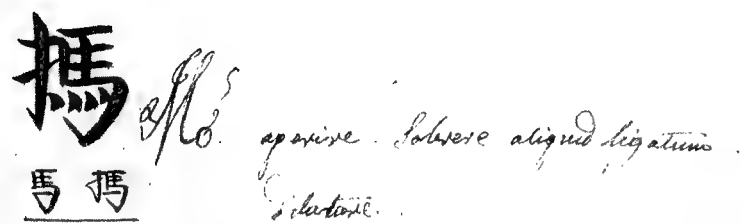 搗 Mở aperire. Solvere aliquid ligatum.
馬 搗 dilatare.